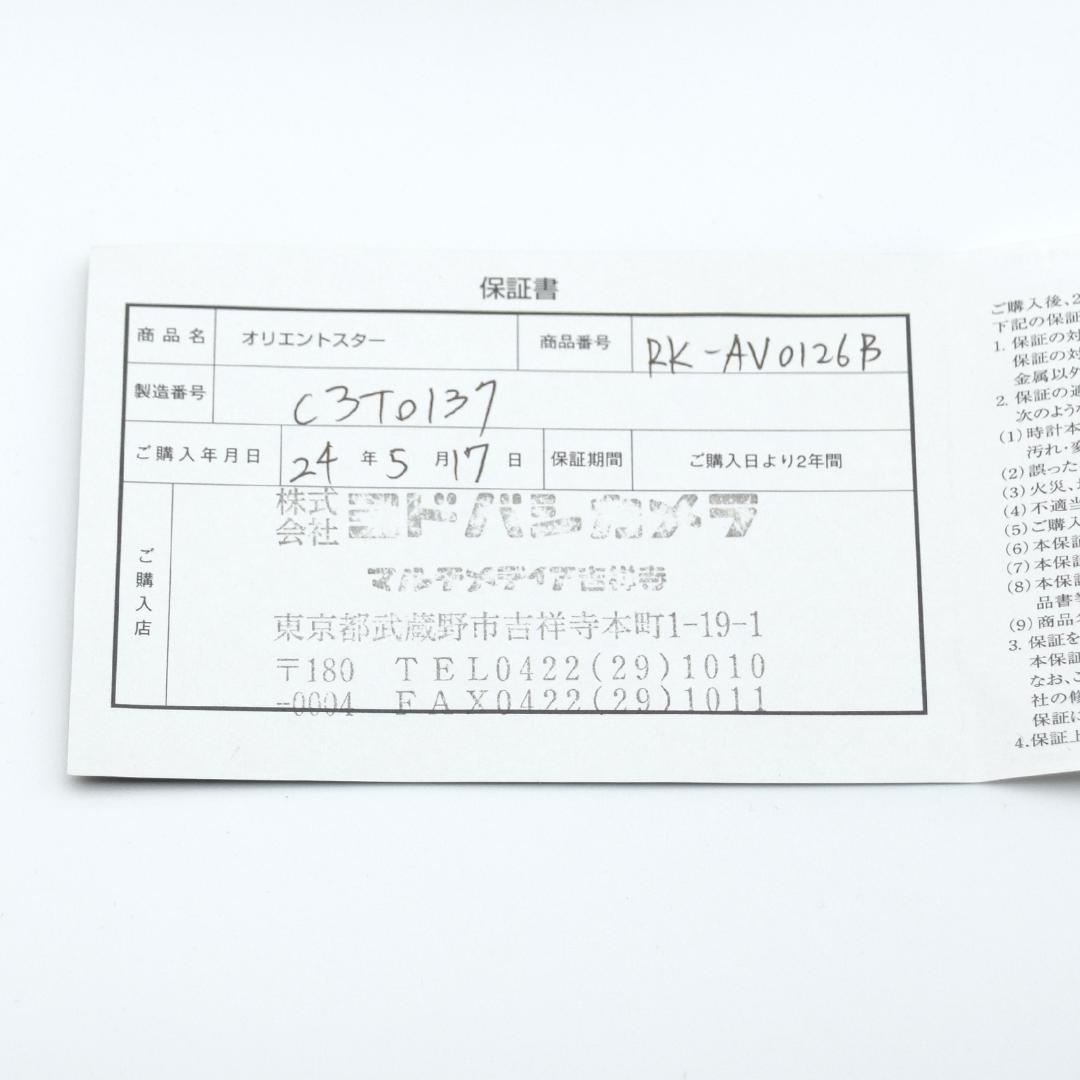 保証書
商品名 オリエントスター 商品番号 RK-AV0126B
製造番号 C3T0137
ご購入年月日 24年5月17日 保証期間 ご購入日より2年間
ご購入店
株式会社 ヨドバシカメラ
マルチメディア吉祥寺
東京都武蔵野市吉祥寺本町1-19-1
〒180 TEL0422(29)1010
-0004 FAX0422(29)1011
ご購入後、2
下記の保証
1. 保証の対
保証の対
金属以外
2. 保証の適
次のような
(1) 時計本
汚れ・変
(2) 誤った
(3) 火災、
(4) 不適当
(5) ご購入
(6) 本保証
(7) 本保証
(8) 本保証
品書等
(9) 商品名
3. 保証を
本保証
なお、ご
社の修
保証に
4. 保証上